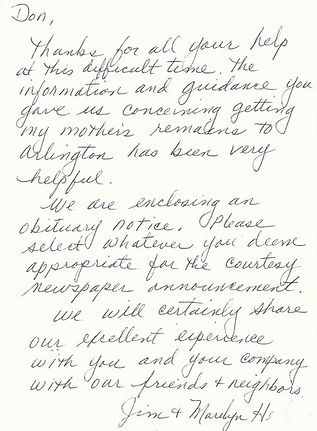 Don,
Thanks for all your help
at this difficult time. The
information and guidance you
gave us concerning getting
my mother's remains to
Arlington has been very
helpful.
We are enclosing an
obituary notice. Please
select whatever you deem
appropriate for the courtesy
newspaper announcement.
We will certainly share
our excellent experience
with you and your company
with our friends + neighbors.
Jim + Marilyn H